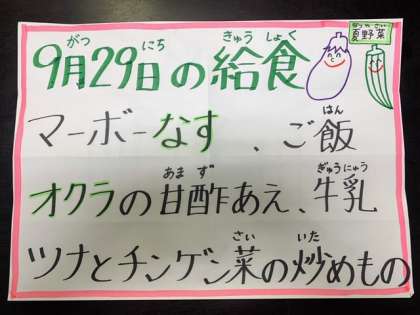 9月29日の給食
がつ にち きゅう しょく
なつやさい
夏野菜
マーボーなす、ご飯
はん
オクラの甘酢あえ、牛乳
あま ず ぎゅうにゅう
ツナとチンゲン菜の炒めもの
さい いた